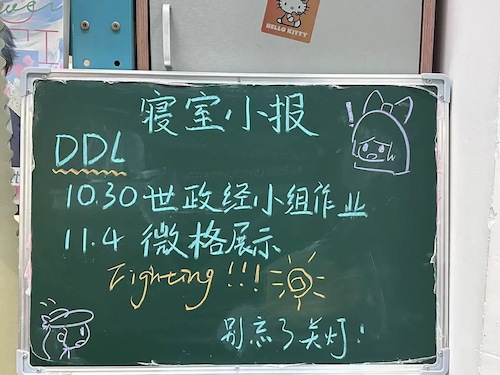 HELLO KITTY
寝室小报
DDL
10.30 世政经小组作业
11.4 微格展示
Fighting!!!
别忘了关灯!